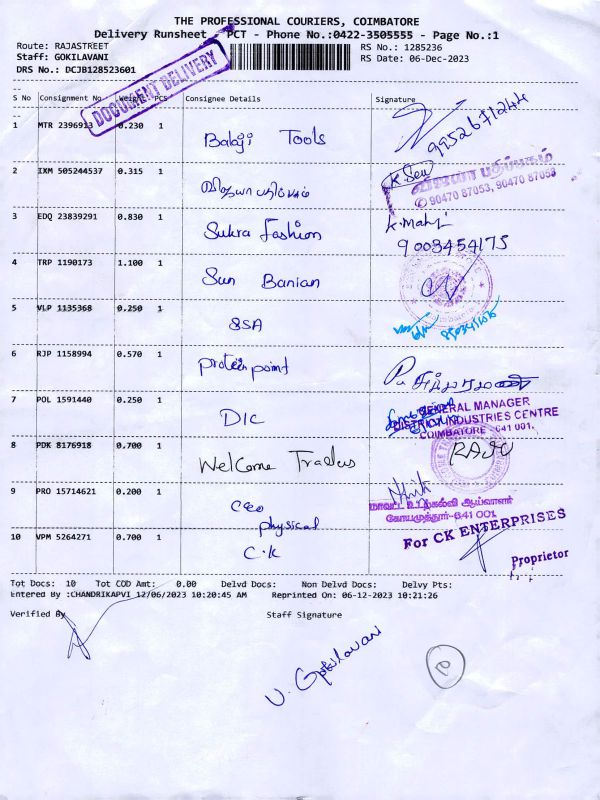 THE PROFESSIONAL COURIERS, COIMBATORE
Delivery Runsheet - PCT - Phone No.:0422-3505555 - Page No.:1
Route: RAJASTREET
RS No.: 1285236
Staff: GOKILAVANI
RS Date: 06-Dec-2023
DRS No.: DCJB128523601
DOCUMENT DELIVERY
S No Consignment No Weight PCS Consignee Details Signature
1 MTR 2396913 0.230 1 Balaji Tools 9952671244
2 IXM 505244537 0.315 1 விஜயா பதிப்பகம் K.Sen
விஜயா பதிப்பகம்
✆ 90470 87053, 90470 87053
3 EDQ 23839291 0.830 1 Sukra Fashion K.mahi
9003454175
4 TRP 1190173 1.100 1 Sun Banian
5 VLP 1135368 0.250 1 SSA
6 RJP 1158994 0.570 1 protein point
7 POL 1591440 0.250 1 DIC
GENERAL MANAGER
DISTRICT INDUSTRIES CENTRE
COIMBATORE - 641 001.
8 PDK 8176918 0.700 1 Welcome Traders RAJU
9 PRO 15714621 0.200 1 CEO
physical
மாவட்ட உடற்கல்வி ஆய்வாளர்
கோயமுத்தூர்-641 001
10 VPM 5264271 0.700 1 C.K
For CK ENTERPRISES
Proprietor
Tot Docs: 10 Tot COD Amt: 0.00 Delvd Docs: Non Delvd Docs: Delvy Pts:
Entered By :CHANDRIKAPVI 12/06/2023 10:20:45 AM Reprinted On: 06-12-2023 10:21:26
Verified By
Staff Signature
V. Gokilavani
10